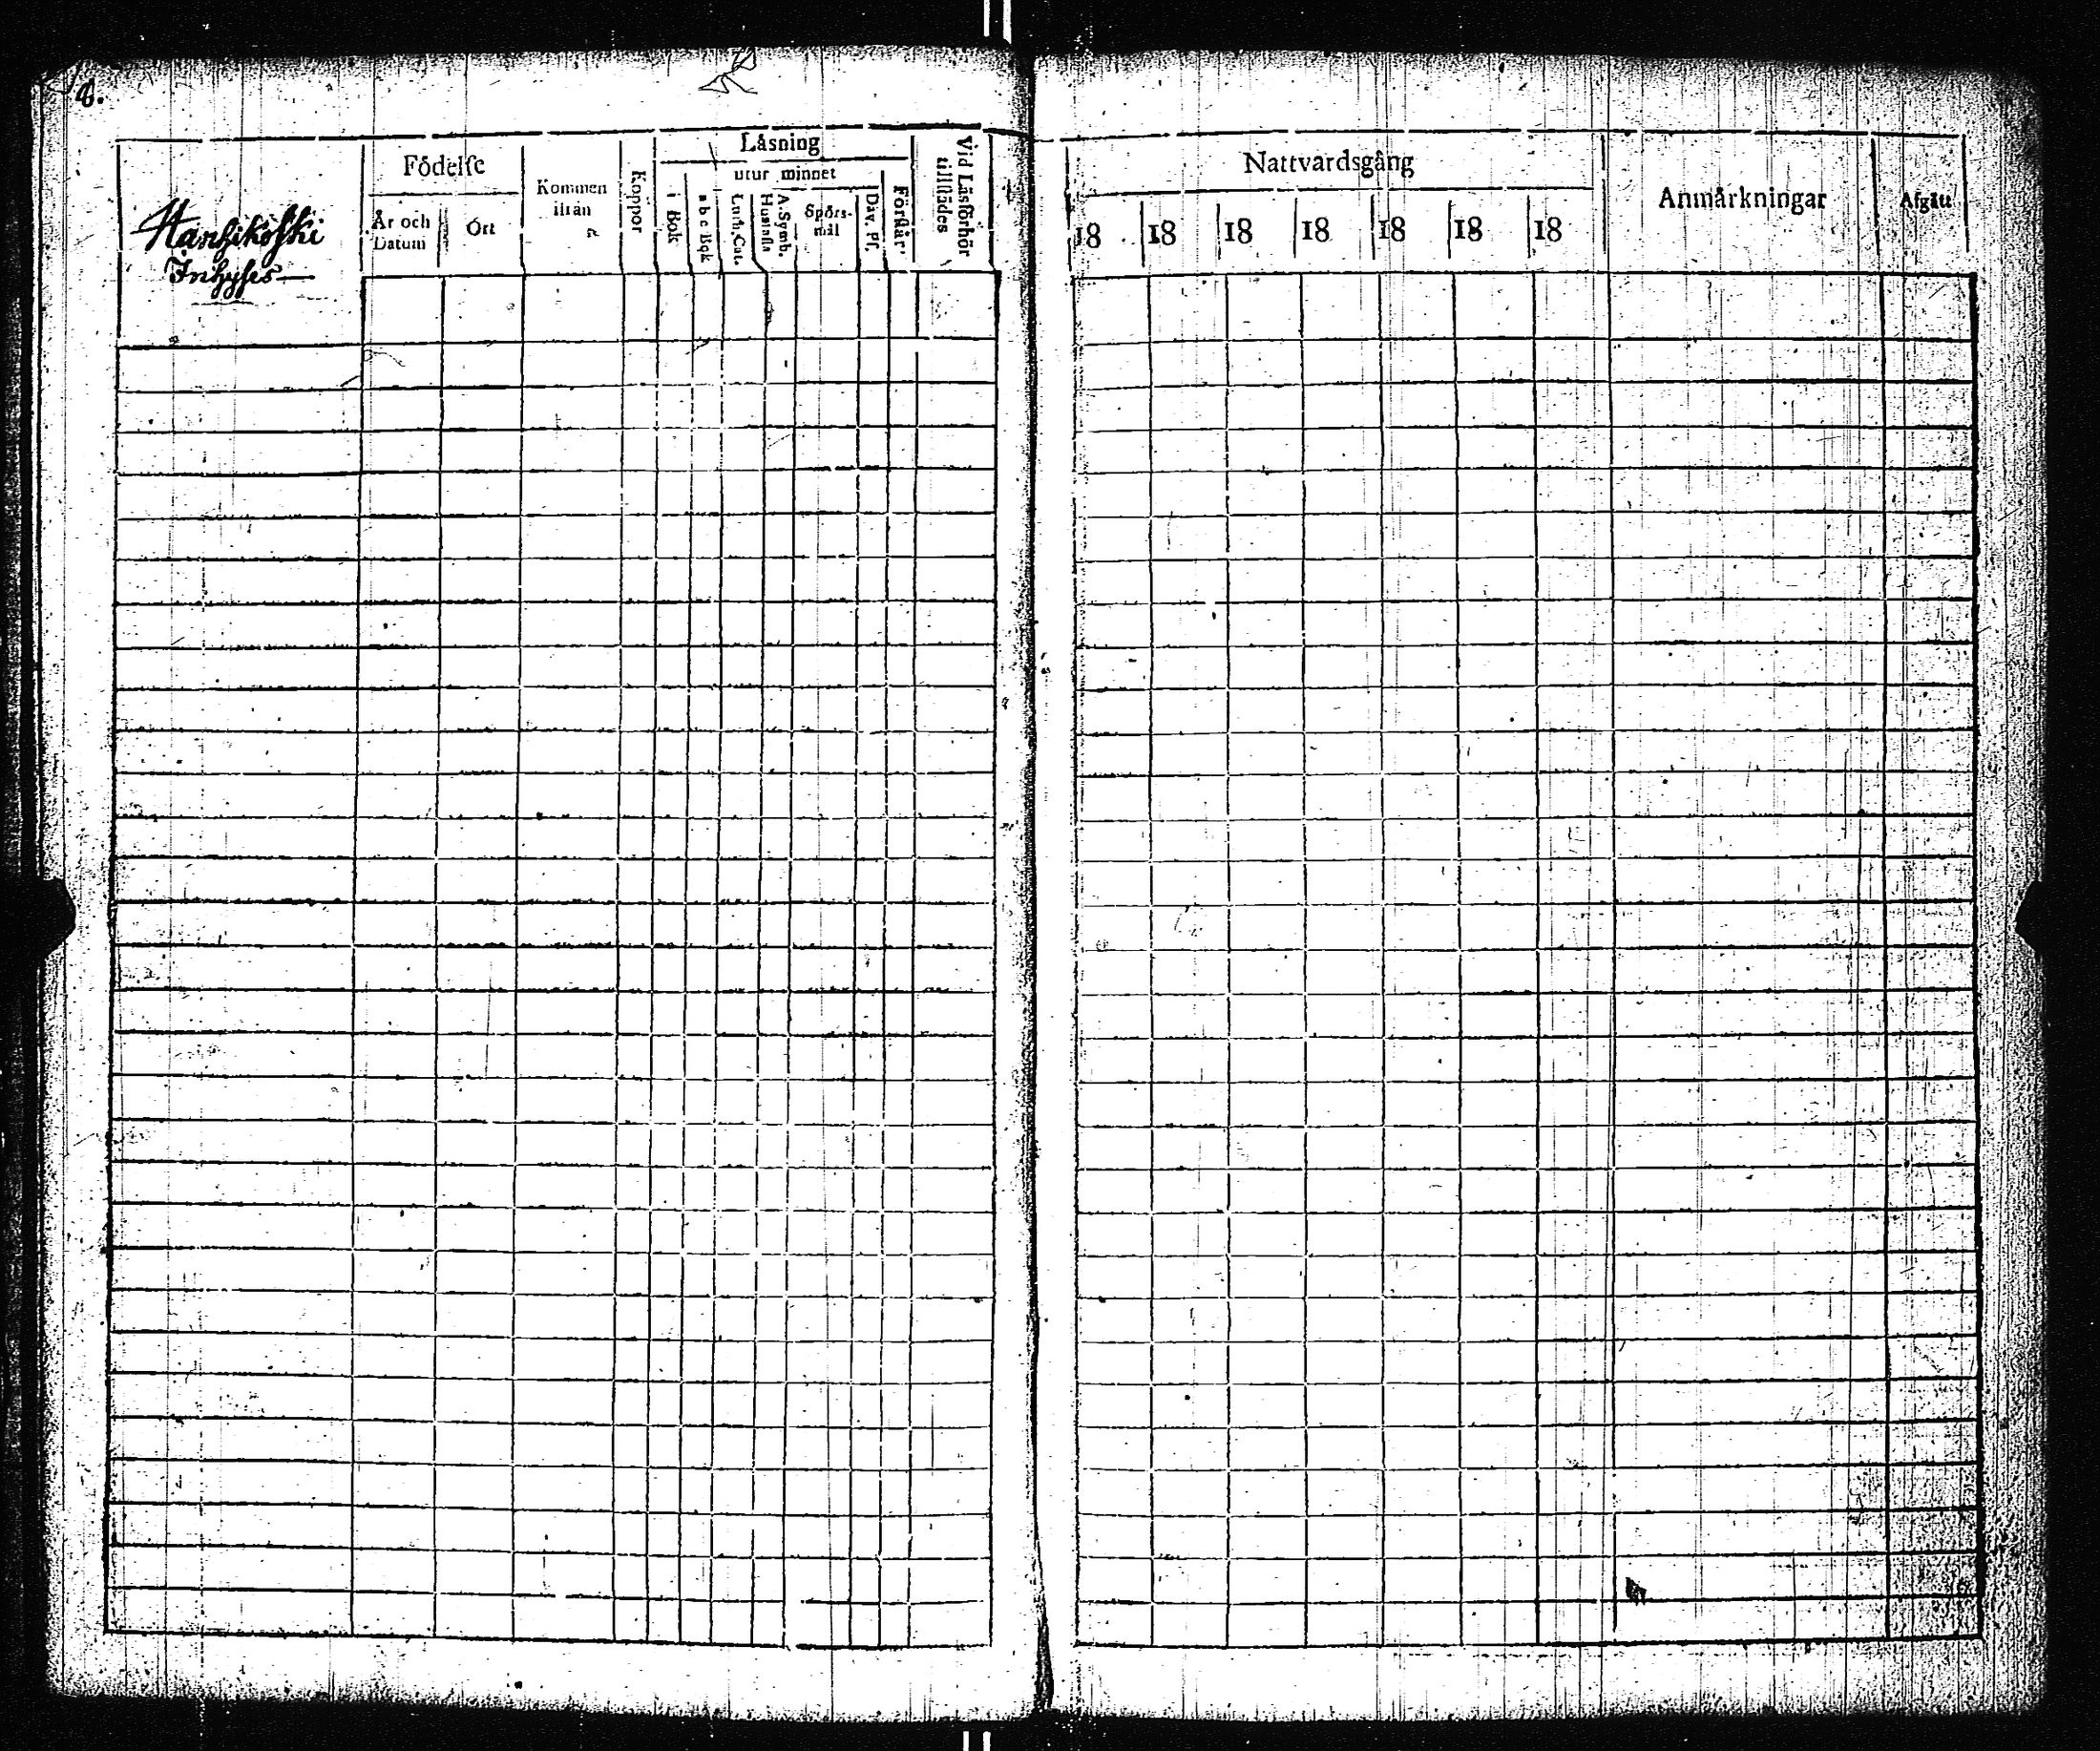 8.
Hanhikoski
Inhyses
Födelse
År och
Datum
Ort
Kommen
ifrån
Koppor
Läsning
utur minnet
i Bok
a b c Bok
Luth. Cat.
Hustafla
A. Symb.
Spörs-
mål
Dav. Ps.
Förstår
Vid Läsförhör
tillstädes
Nattvardsgång
18 18 18 18 18 18 18
Anmärkningar
Afgått